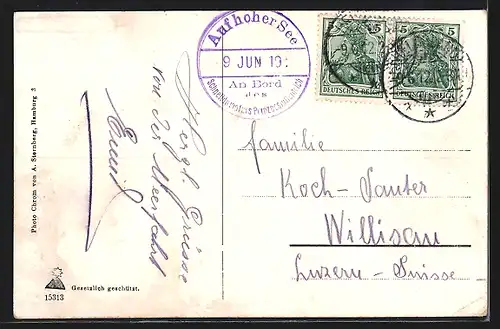 Auf hoher See
9 JUN 19
An Bord
des
5
5
DEUTSCHES REICH
DEUTSCHES REICH
Herzl. Grüsse
von der Meerfahrt
Familie
Koch-Sauter
Willisau
Luzern-Suisse
Photo Chrom von A. Sternberg, Hamburg 3
Gesetzlich geschützt.
15313